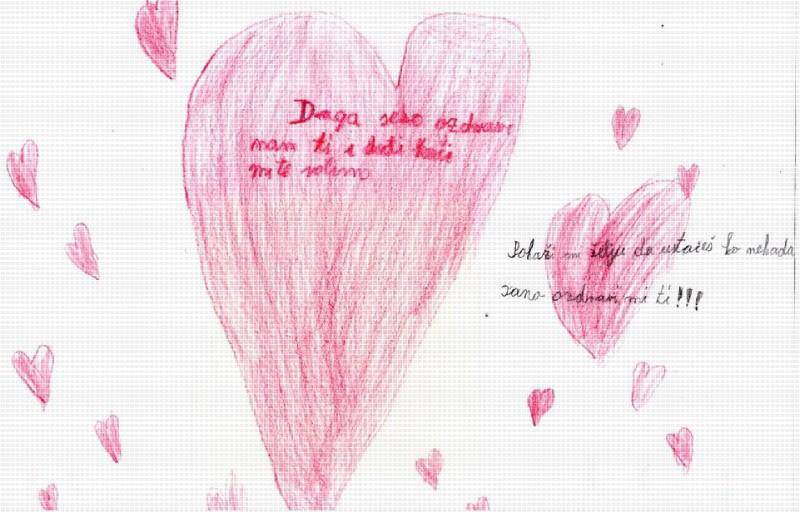 Draga seso ozdravi
nam ti i dođi kući
mi te volimo
Pokaži mi želju da ustaješ ko nekada
zano ozdravi mi ti!!!